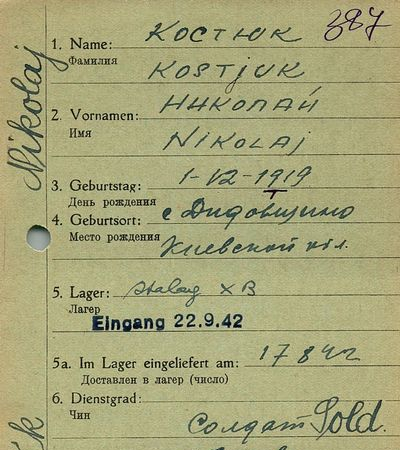 387
1. Name: Костюк
Фамилия
Kostjuk
2. Vornamen: Николай
Имя
Nikolaj
3. Geburtstag: 1-12-1919
День рождения
4. Geburtsort: с Дидовщино
Место рождения Киевской обл.
5. Lager: Stalag X B
Лагер
Eingang 22.9.42
5a. Im Lager eingeliefert am: 17 8 42
Доставлен в лагер (число)
6. Dienstgrad:
Чин
Солдат Sold.
Nikolaj